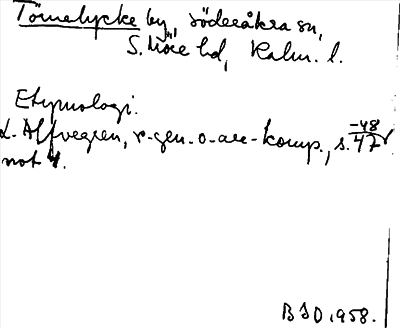 Tömelycke by, Söderåkra sn,
S. Möre hd, Kalm. l.
Etymologi.
L. Alfvegren, r-gen. o. are-komp., s. 47
-48
not 4.
BSD. 1958.